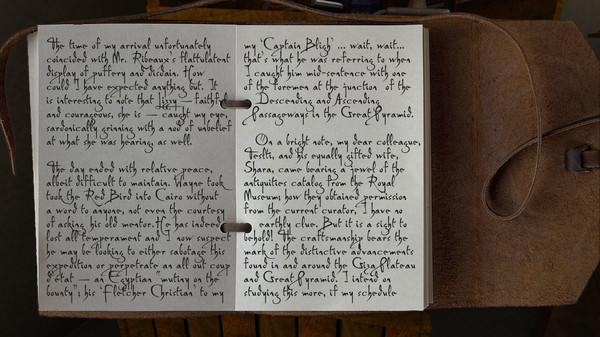 The time of my arrival unfortunately
coincided with Mr. Ribeaux's flattulatent
display of puffery and disdain. How
could I have expected anything but. It
is interesting to note that Lizzy — faithful
and courageous, she is — caught my eye,
sardonically grinning with a nod of unbelief
at what she was hearing, as well.
The day ended with relative peace,
albeit difficult to maintain. Wayne took
took the Red Bird into Cairo without
a word to anyone, not even the courtesy
of asking his old mentor. He has indeed
lost all temperament and I now suspect
he may be looking to either sabotage this
expedition or perpetrate an all out coup
d'etat — an Egyptian "mutiny on the
bounty"; his 'Fletcher Christian' to my
my 'Captain Bligh' ... wait, wait...
that's what he was referring to when
I caught him mid-sentence with one
of the foremen at the junction of the
Descending and Ascending
Passageways in the Great Pyramid.
On a bright note, my dear colleague,
Teslti, and his equally gifted wife,
Shara, came bearing a jewel of the
antiquities catalog from the Royal
Museum how they obtained permission
from the current curator, I have no
earthly clue. But it is a sight to
behold! The craftsmanship bears the
mark of the distinctive advancements
found in and around the Giza Plateau
and Great Pyramid. I intend on
studying this more, if my schedule